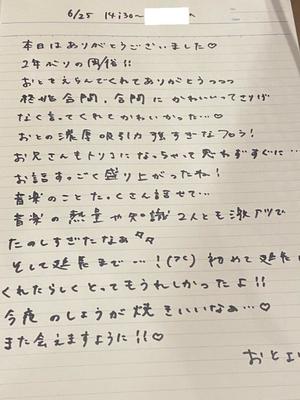 6/25 14:30〜
本日はありがとうございました♡
2年ぶりの円俗!!
おとをえらんでくれてありがとうっっっ
終始合間、合間にかわいいってさりげ
なく言ってくれてかわいかった…♡
おとの濃厚吸引力強すぎなフロう!
お兄さんもトリコになっちゃって思わずすぐに…
お話すっごく盛り上がったね!
音楽のことたくさん話せて…
音楽の熱量や知識2人とも激アツで
たのしすぎたなぁ
そして延長まで…!(泣)初めて延長
くれたらしくとってもうれしかったよ!!
今度のしょうが焼きいいなぁ…♡
また会えますように!!♡
おとより